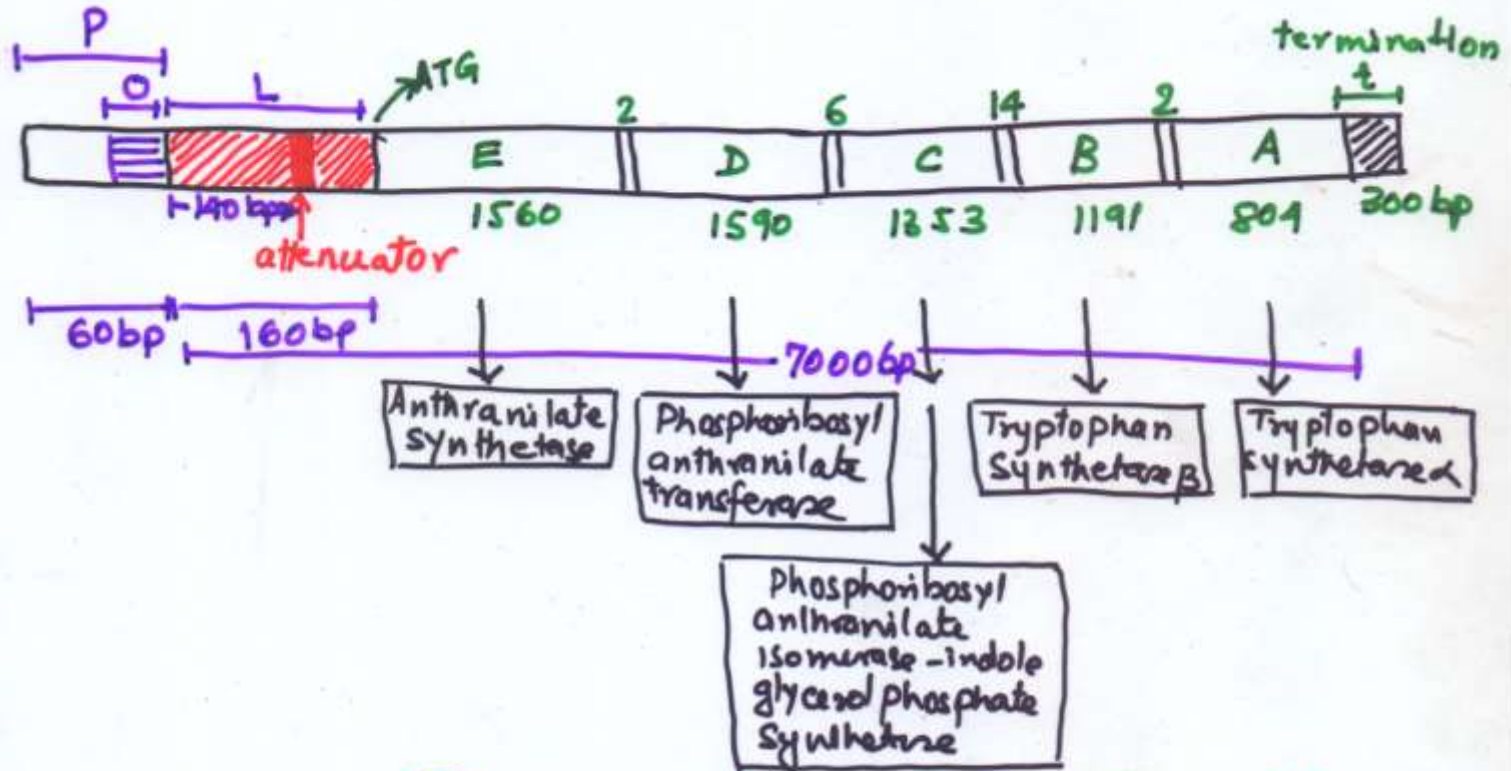 P
O L ATG
termination
t
2 6 14 2
E D C B A
140 bp
1560 1590 1353 1191 804 300 bp
attenuator
60 bp 160 bp
7000 bp
Anthranilate
synthetase
Phosphoribosyl
anthranilate
transferase
Phosphoribosyl
anthranilate
isomerase-indole
glycerol phosphate
synthetase
Tryptophan
synthetase β
Tryptophan
synthetase α